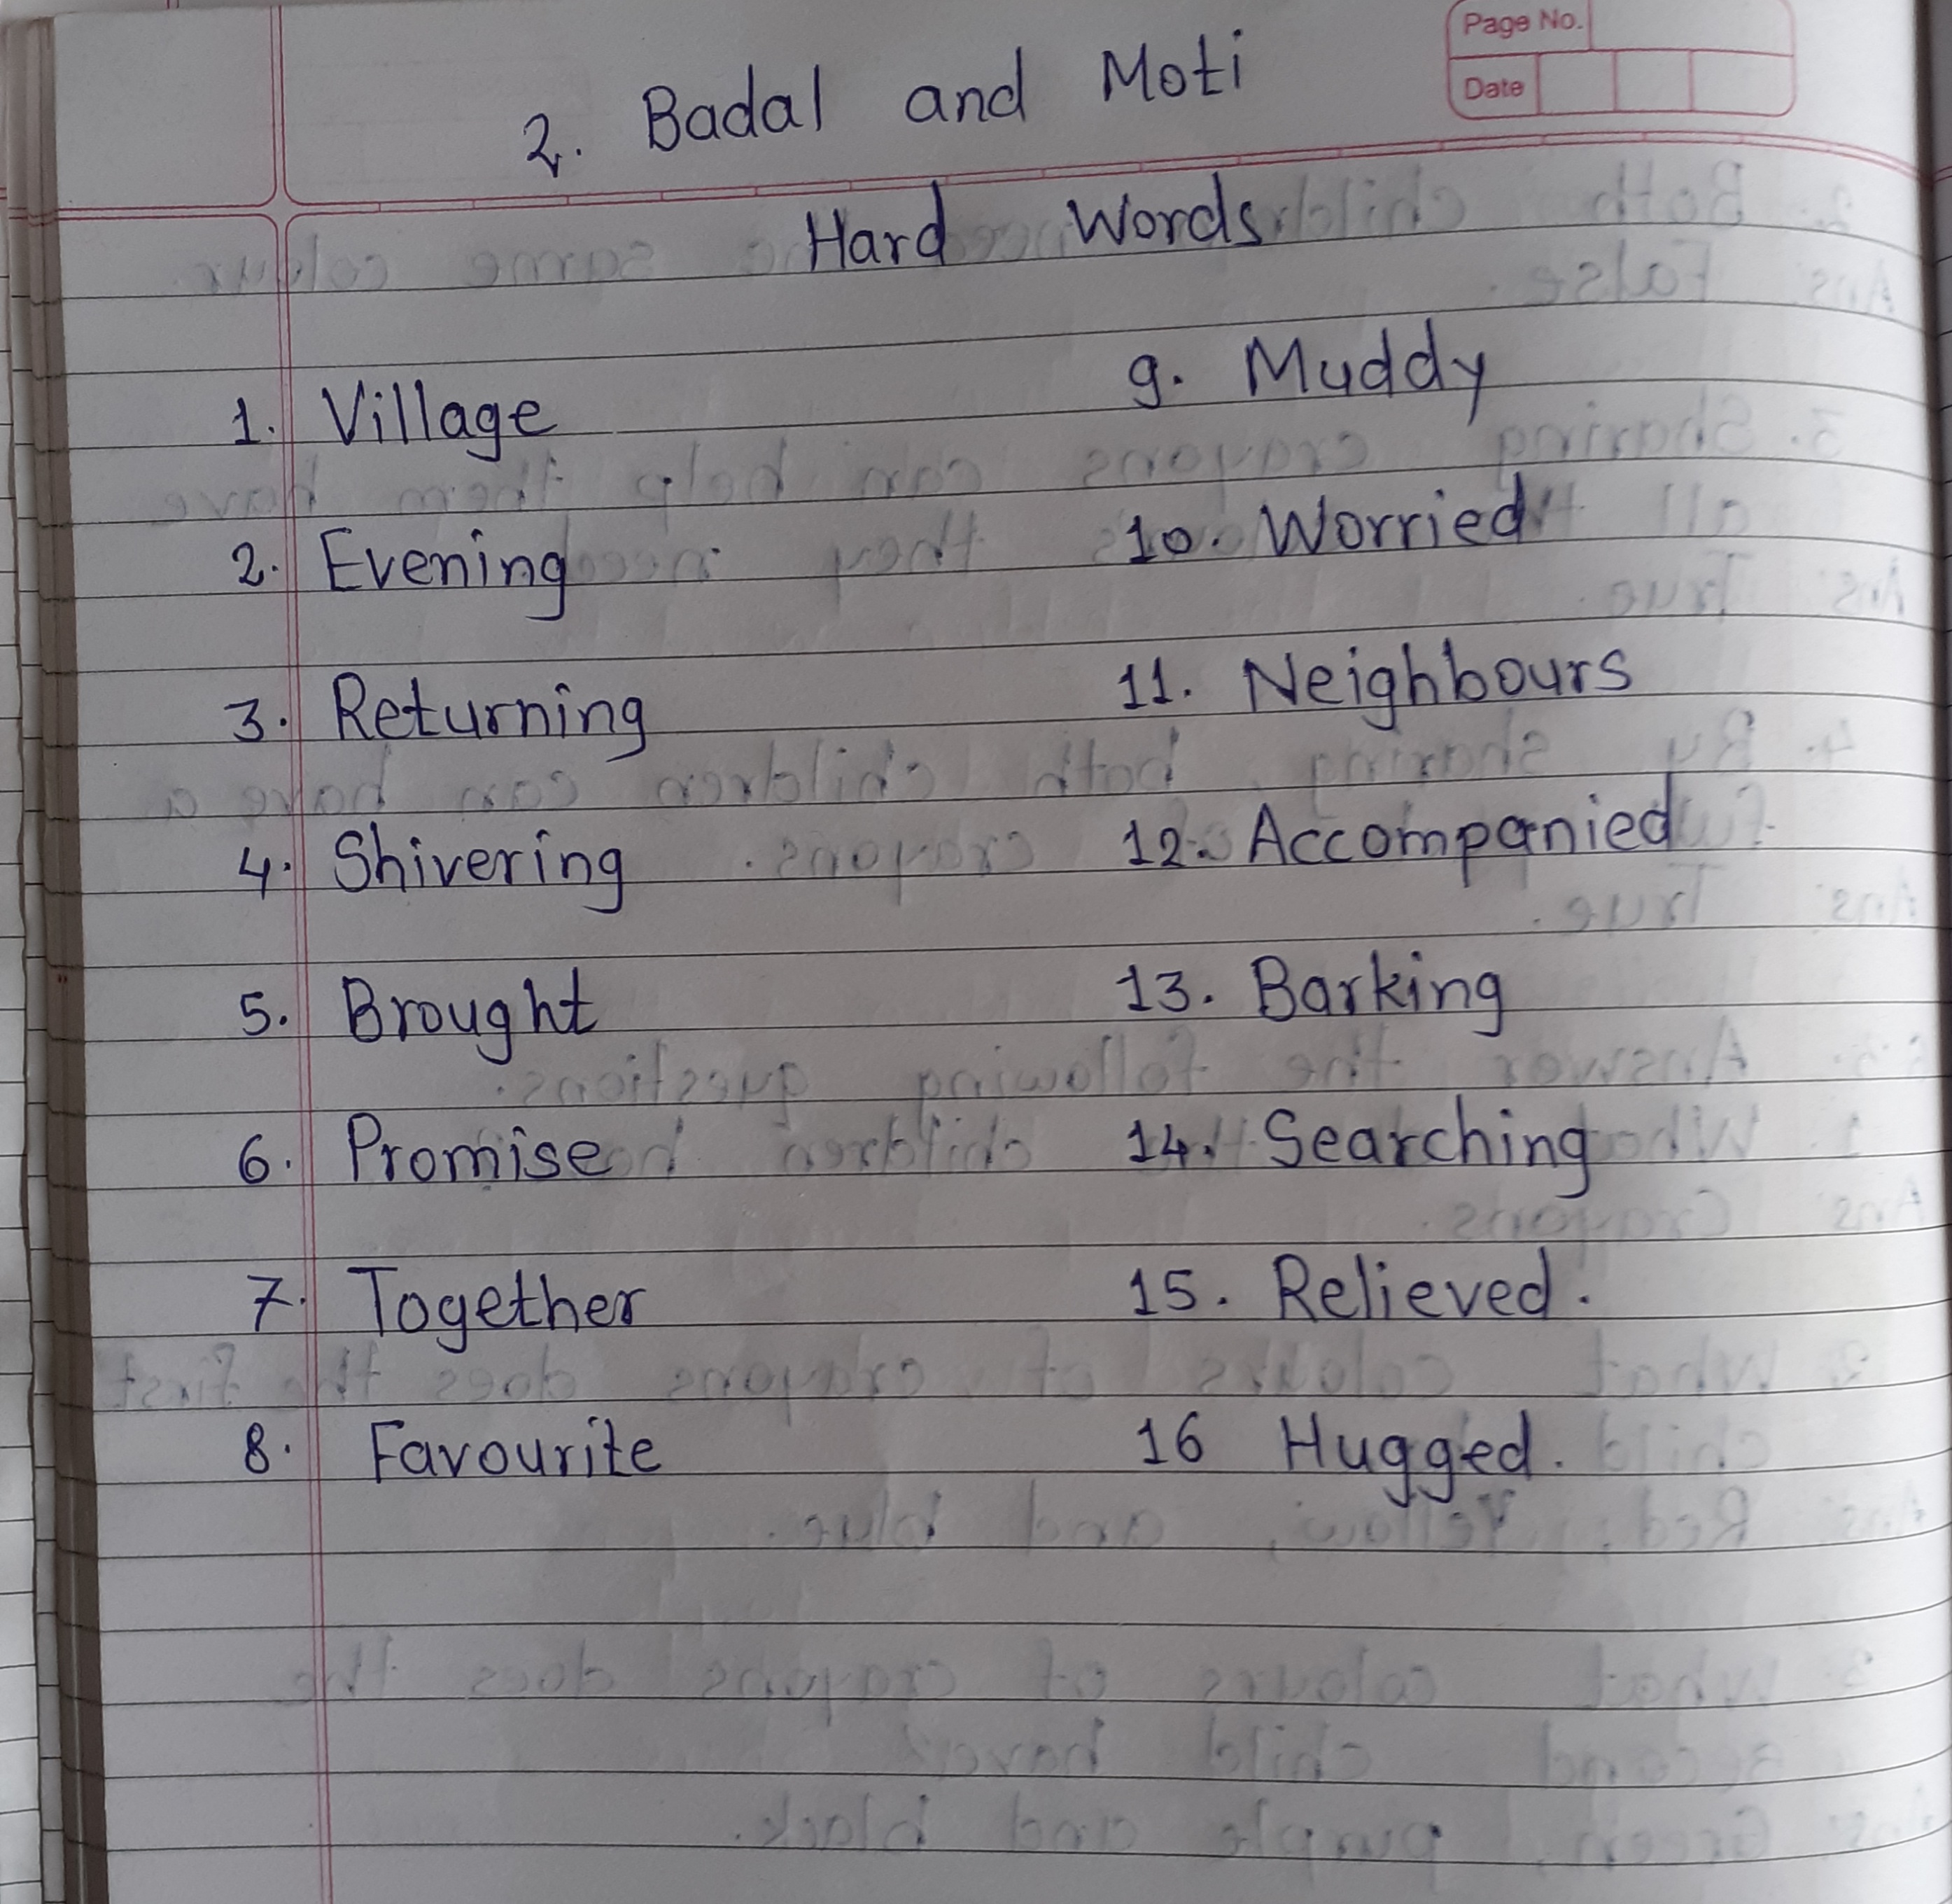 Page No.
Date
2. Badal and Moti
Hard Words
1. Village
2. Evening
3. Returning
4. Shivering
5. Brought
6. Promise
7. Together
8. Favourite
9. Muddy
10. Worried
11. Neighbours
12. Accompanied
13. Barking
14. Searching
15. Relieved.
16 Hugged.